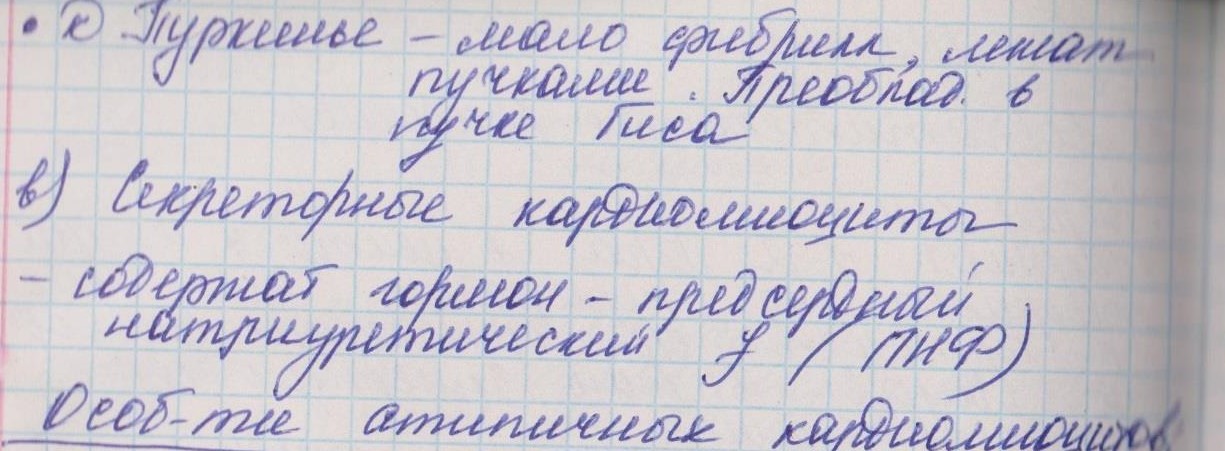 • к) Пуркинье – мало фибрилл, лежат
пучками. Преоблад. в
пучке Гиса
в) Секреторные кардиомиоциты
– содержат гормон – предсердный
натриуретический f (ПНФ)
Особ-ти атипичных кардиомиоцитов: